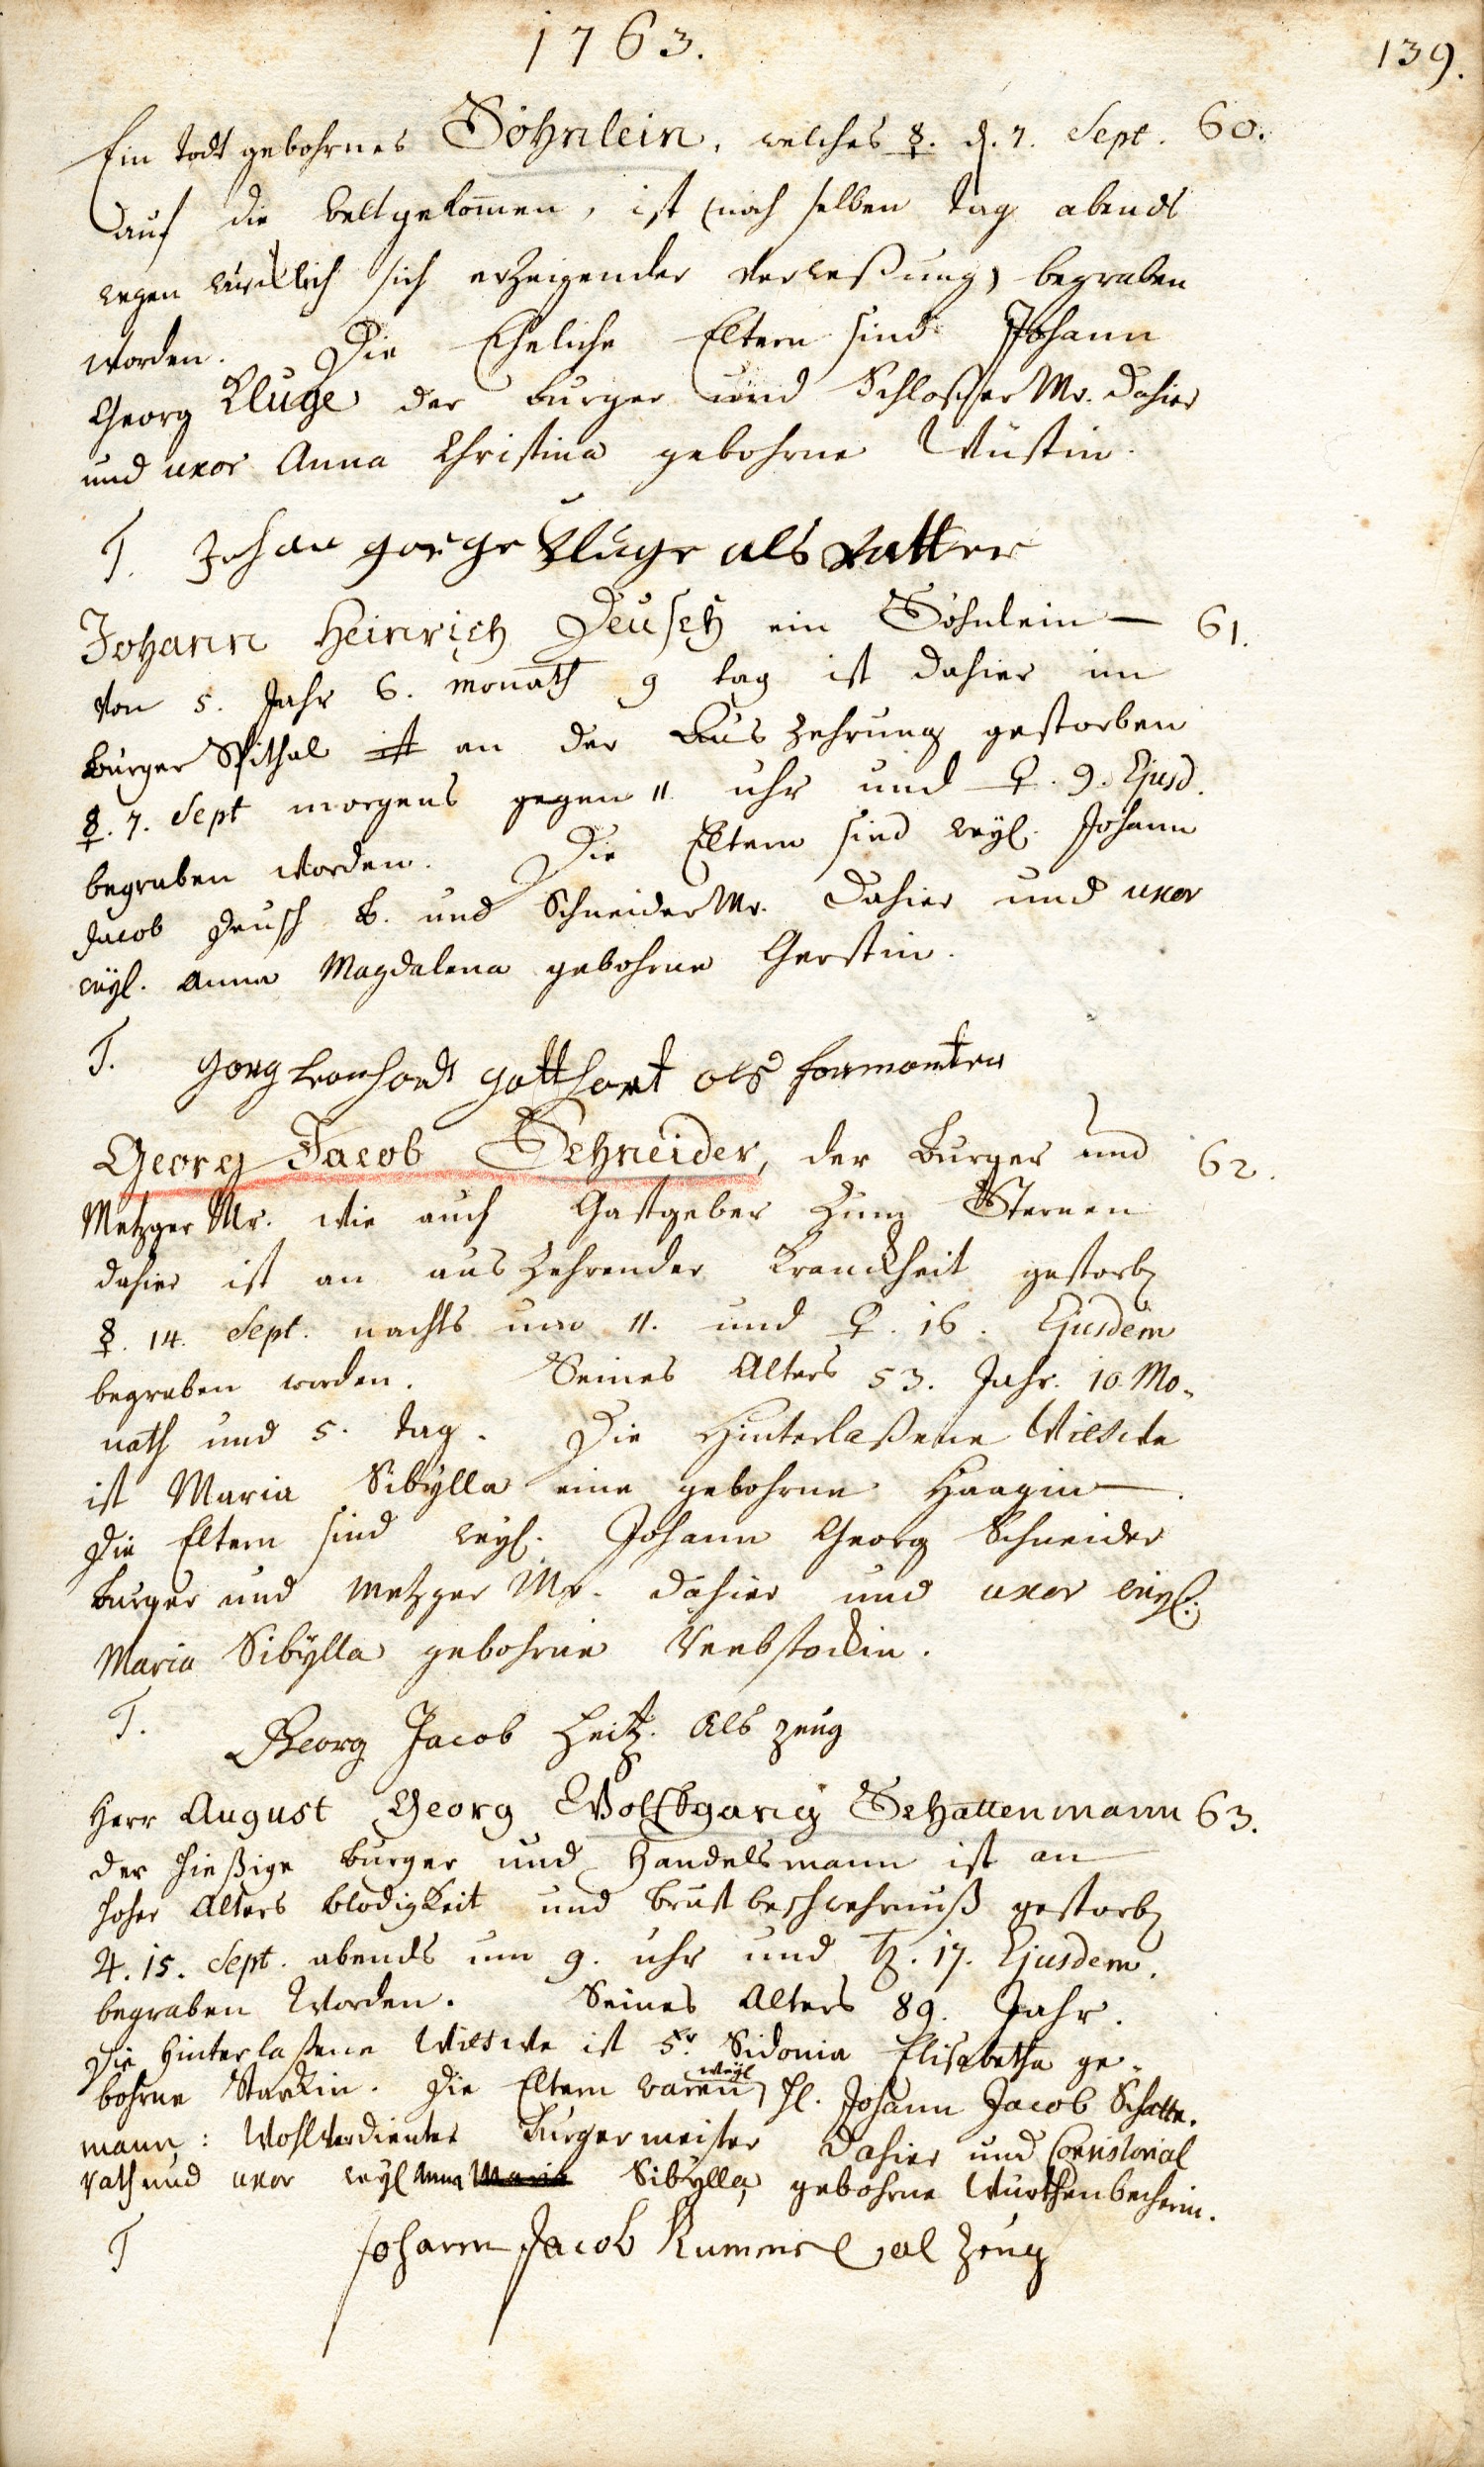 1763.
139.
Ein todt gebohrnes Söhnlein, welches ☿. d. 7. Sept. 60.
auf die welt gekom̄en, ist (noch selben tag abends
wegen würcklich sich erzeigender verwesßung) begraben
worden. Die Eheliche Eltern sind Johann
Georg Kluge der burger und Schlosser Mr. dahier
und uxor Anna Christina gebohrne Wüstin.
T. Johan gorge Kluge als Vatter
Johann Heinrich Deusch ein Söhnlein — 61.
von 5. Jahr 6. monath 9 tag ist dahier im
burger Spithal ist an der Auszehrung gestorben
☿. 7. Sept morgens gegen 11 uhr und ♀. 9. Ejusd.
begraben worden. Die Eltern sind weyl. Johann
Jacob Deusch b. und Schneider Mr. dahier und uxor
weyl. Anna Magdalena gebohrne Gerstin.
T. gorg leonhardt gotthart als
Georg Jacob Schneider, der burger und 62.
Metzger Mr. wie auch Gastgeber zum Sternen
dahier ist an auszehrender kranckheit gestorb.
☿. 14. Sept. nachts um 11. und ♀. 16. Ejusdem
begraben worden. Seines Alters 53. Jahr. 10. Mo-
nath und 5. tag. Die Hinterlaßene Wittwe
ist Maria Sibÿlla eine gebohrne Haagin —.
Die Eltern sind weyl. Johann Georg Schneider
burger und Metzger Mr. dahier und uxor weyl.
Maria Sibÿlla gebohrne Reebstöckin.
T. Georg Jacob Heitz. Als zeug
Herr August Georg Wolffgang Schattenmann 63.
der hießige burger und Handelsmann ist an
hoher Alters blödigkeit und brust beschwehrnuß gestorb.
♃. 15. Sept. abends um 9. uhr und ♄. 17. Ejusdem.
begraben Worden. Seines Alters 89. Jahr.
Die Hinterlaßene Wittwe ist Fr. Sidonia Elisabetha ge-
bohrne Starckin. Die Eltern waren weyl H. Johann Jacob Schatte-
mann: Wohlverdienter burgermeister dahier und Consistorial
rath und uxor weyl Anna Maria Sibÿlla, gebohrne
T Johann Jacob Kummel al zeug